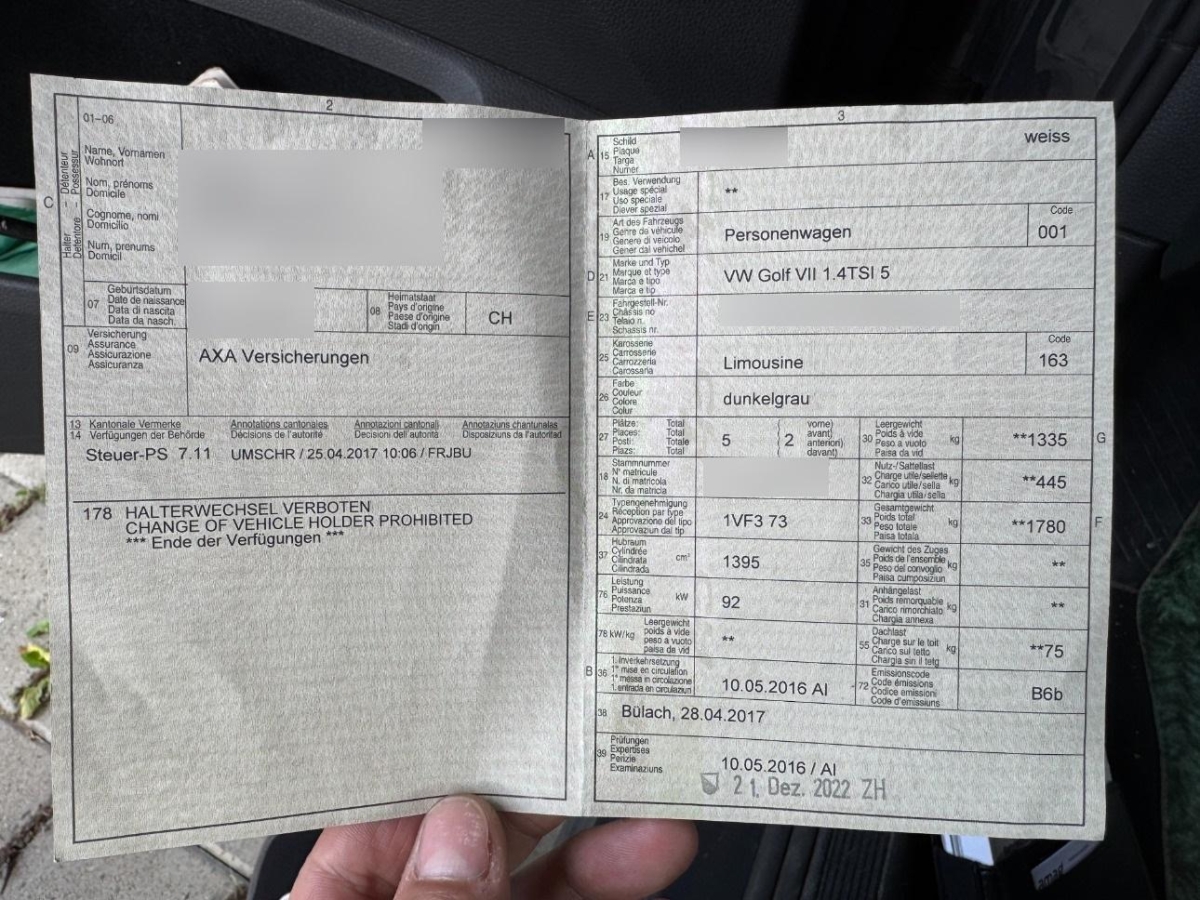 2
01–06
C
Halter – Détenteur
Detentore – Possessur
Name, Vornamen
Wohnort
Nom, prénoms
Domicile
Cognome, nomi
Domicilio
Num, prenums
Domicil
07
Geburtsdatum
Date de naissance
Data di nascita
Data da nasch.
08
Heimatstaat
Pays d'origine
Paese d'origine
Stadi d'origin
CH
09
Versicherung
Assurance
Assicurazione
Assicuranza
AXA Versicherungen
13 Kantonale Vermerke Annotations cantonales Annotazioni cantonali Annotaziuns chantunalas
14 Verfügungen der Behörde Décisions de l'autorité Decisioni dell'autorità Disposiziuns da l'autoritad
Steuer-PS 7.11 UMSCHR / 25.04.2017 10:06 / FRJBU
178 HALTERWECHSEL VERBOTEN
CHANGE OF VEHICLE HOLDER PROHIBITED
*** Ende der Verfügungen ***
3
A 15
Schild
Plaque
Targa
Numer
weiss
17
Bes. Verwendung
Usage spécial
Uso speciale
Diever spezial
**
19
Art des Fahrzeugs
Genre de véhicule
Genere di veicolo
Gener dal vehichel
Personenwagen
Code
001
D 21
Marke und Typ
Marque et type
Marca e tipo
Marca e tip
VW Golf VII 1.4TSI 5
E 23
Fahrgestell-Nr.
Châssis no
Telaio n.
Schassis nr.
25
Karosserie
Carrosserie
Carrozzeria
Carossaria
Limousine
Code
163
26
Farbe
Couleur
Colore
Colur
dunkelgrau
27
Plätze: Total
Places: Total
Posti: Totale
Plazs: Total
5
2
vorne)
avant)
anteriori)
davant)
30
Leergewicht
Poids à vide
Peso a vuoto
Paisa da vid
kg
**1335
G
18
Stammnummer
N° matricule
N. di matricola
Nr. da matricla
32
Nutz-/Sattellast
Charge utile/sellette
Carico utile/sella
Chargia utila/sella
kg
**445
24
Typengenehmigung
Réception par type
Approvazione del tipo
Approvaziun dal tip
1VF3 73
33
Gesamtgewicht
Poids total
Peso totale
Paisa totala
kg
**1780
F
37
Hubraum
Cylindrée
Cilindrata
Cilindrada
cm³
1395
35
Gewicht des Zuges
Poids de l'ensemble
Peso del convoglio
Paisa cumposiziun
kg
**
76
Leistung
Puissance
Potenza
Prestaziun
kW
92
31
Anhängelast
Poids remorquable
Carico rimorchiato
Chargia annexa
kg
**
78 kW/kg
Leergewicht
poids à vide
peso a vuoto
paisa da vid
**
55
Dachlast
Charge sur le toit
Carico sul tetto
Chargia sin il tetg
kg
**75
B 36
1. Inverkehrsetzung
1re mise en circulation
1a messa in circolazione
1. entrada en circulaziun
10.05.2016 AI
72
Emissionscode
Code émissions
Codice emissioni
Code d'emissiuns
B6b
38
Bülach, 28.04.2017
39
Prüfungen
Expertises
Perizie
Examinaziuns
10.05.2016 / AI
21. Dez. 2022 ZH
amag